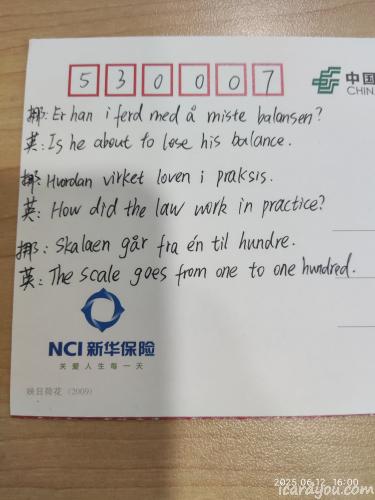 530007
中国
CHINA
挪: Er han i ferd med å miste balansen?
英: Is he about to lose his balance.
挪: Hvordan virket loven i praksis.
英: How did the law work in practice?
挪: Skalaen går fra én til hundre.
英: The scale goes from one to one hundred.
NCI 新华保险
关爱人生每一天
映日荷花 (2009)
2025.06.12 16:00
icardyou.com